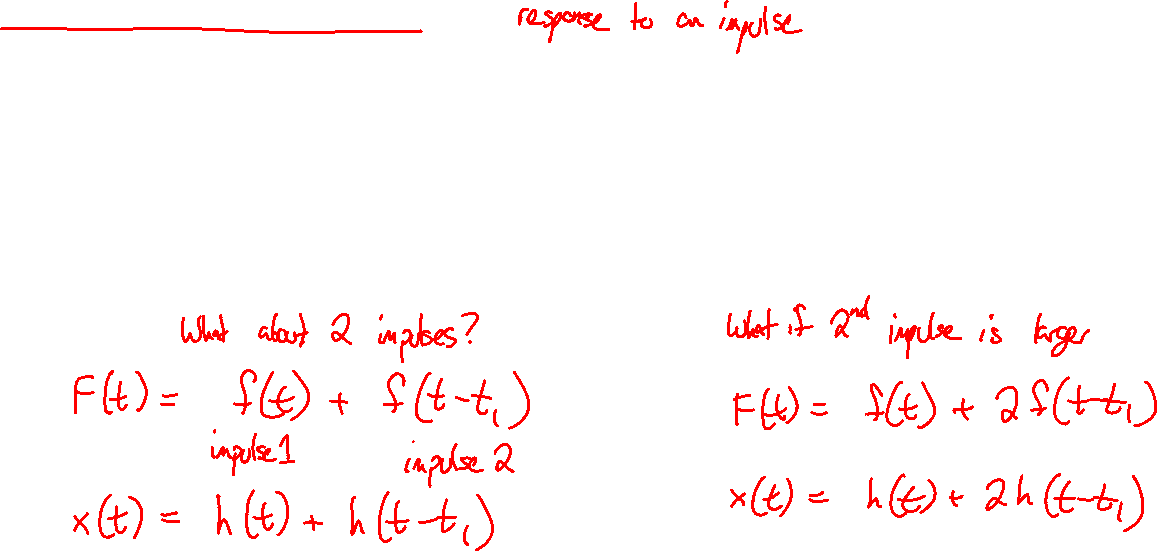 response to an impulse
What about 2 impulses?
F(t) = f(t) + f(t-t₁)
impulse 1 impulse 2
x(t) = h(t) + h(t-t₁)
What if 2nd impulse is larger
F(t) = f(t) + 2f(t-t₁)
x(t) = h(t) + 2h(t-t₁)